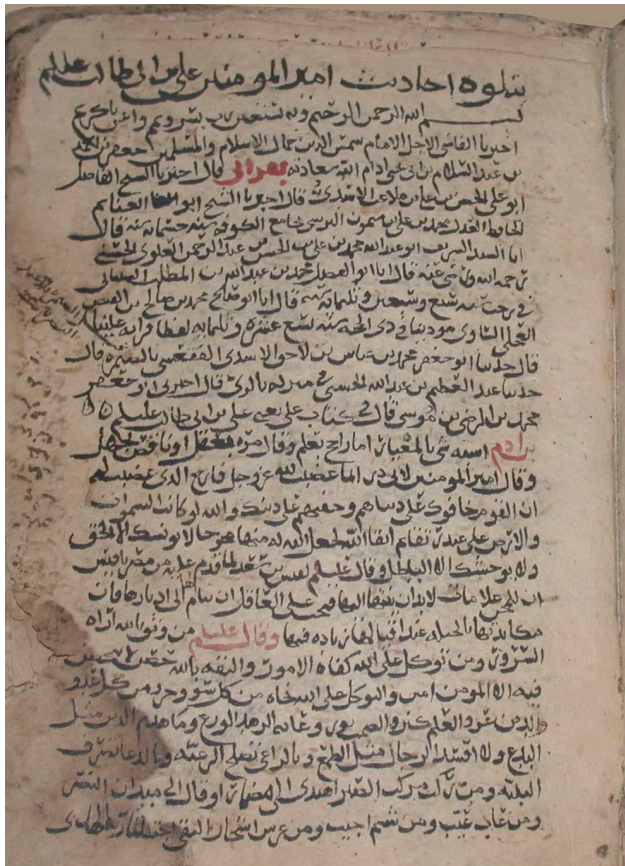 يتلوه احاديث امير المومنين علي بن ابي طالب عليه السلم
بسم الله الرحمن الرحيم وبه نستعين رب يسر وتمم واعن يا كريم
اخبرنا القاضي الاجل الامام شمس الدين جمال الاسلام والمسلمين جعفر بن احمد
بن عبد السلام بن ابي يحيى ادام الله سعادته قال اخبرنا الشيخ الفاضل
ابو علي الحسن بن علي بن ملاعب الاسدي قال اخبرنا الشيخ ابو الغنايم
الحافظ العدل محمد بن علي بن ميمون النرسي بجامع الكوفة سنة خمسمائة قال
انا السيد الشريف ابو عبد الله محمد بن علي بن الحسن بن عبد الرحمن العلوي الحسني
رحمه الله ورضي عنه قال انا ابو المفضل محمد بن عبد الله بن المطلب الشيباني
في رجب سنة سبع وثمانين وثلثمائة قال انا ابو صالح محمد بن صالح بن الفيض
العجلي الساوي في ذي الحجة سنة تسع عشرة وثلثمائة لفظا قراه علينا
قال حدثنا ابو جعفر محمد بن عباس بن الاسدي قال
حدثنا عبد العظيم بن عبد الله الحسني في منزله بالري قال اخبرني ابو جعفر
محمد بن الرضى بن موسى قال في كتاب علي يعني علي بن ابي طالب عليه السلم
بن ادم اشبه شي بالمعيار اما راجح بعلم وقال مرة بعقل او ناقص بجهل
وقال امير المومنين لابي ذر انما غضبت لله عز وجل فارج الذي غضبت له
ان القوم خافوك على دنياهم وخفتهم على دينك والله لو كانت السموات
والارض على عبد رتقا ثم اتقا الله لجعل الله له منها مخرجا لا يونسك الا الحق
ولا يوحشك الا الباطل وقال عليلم لقيس بن سعد لما قدم عليه من مصر يا قيس
ان للمحن غايات لا بد ان تنتها اليها فيجب على العاقل ان ينام لها الى ادبارها فان
مكايدتها بالحيلة عند اقبالها زيادة فيها وقال عليلم من وثق بالله اراه
السرور ومن توكل على الله كفاه الامور والثقة بالله حصن لا يتحصن
فيه الا المومن امين والتوكل على الله نجاة من كل سوء وحرز من كل عدو
والدين عز والعلم كنز والصمت نور وغاية الزهد الورع وما هدم الدين مثل
البدع ولا افسد الرجال مثل الطمع وبالراعي تصلح الرعية وبالدعا تصرف
البلية ومن ركب مركب الصبر اهتدى الى مضمار او قال الى ميدان النصر
ومن عاب عيب ومن شتم اجيب ومن غرس اشجار التقى اجتنى ثمار الهدى